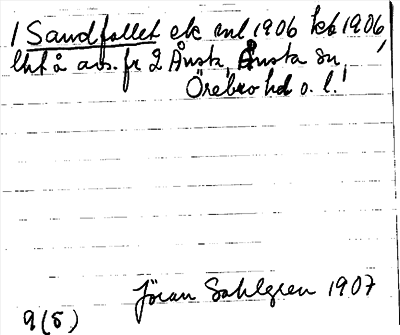 1 Sandfallet ek enl 1906 kb 1906,
lht å avs. fr 2 Ånsta, Ånsta sn,
Örebro hd o. l.
Jöran Sahlgren 1907
9(8)